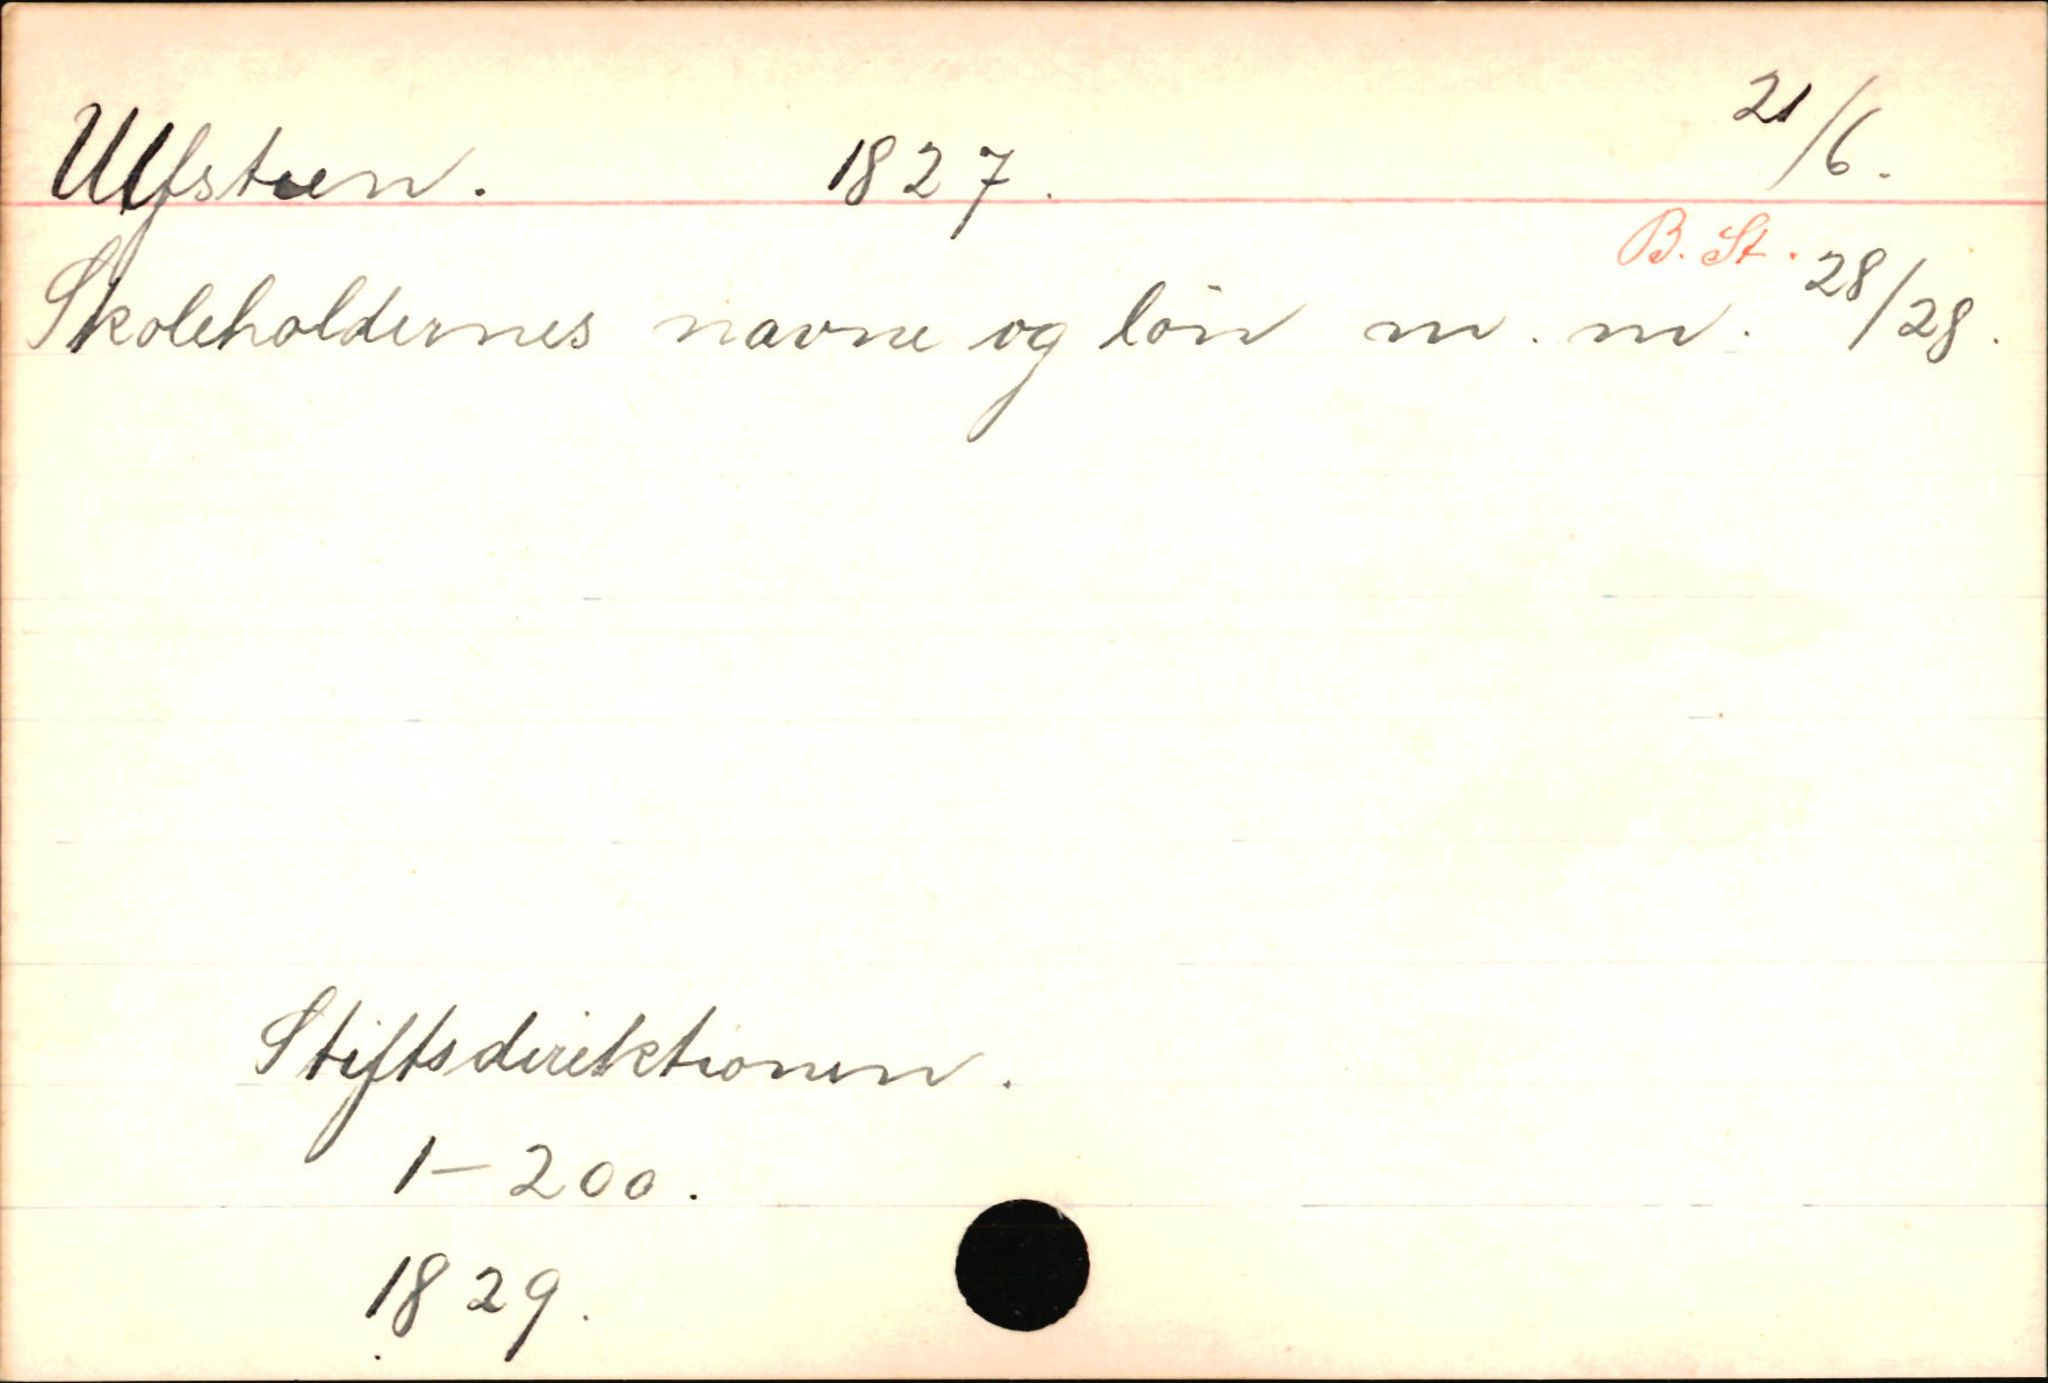 Ulfsteen. 1827. 21/6.
B. St.
Skoleholdernes navne og lön m. m. 28/28.
Stiftsdirektionen.
1-200.
1829.